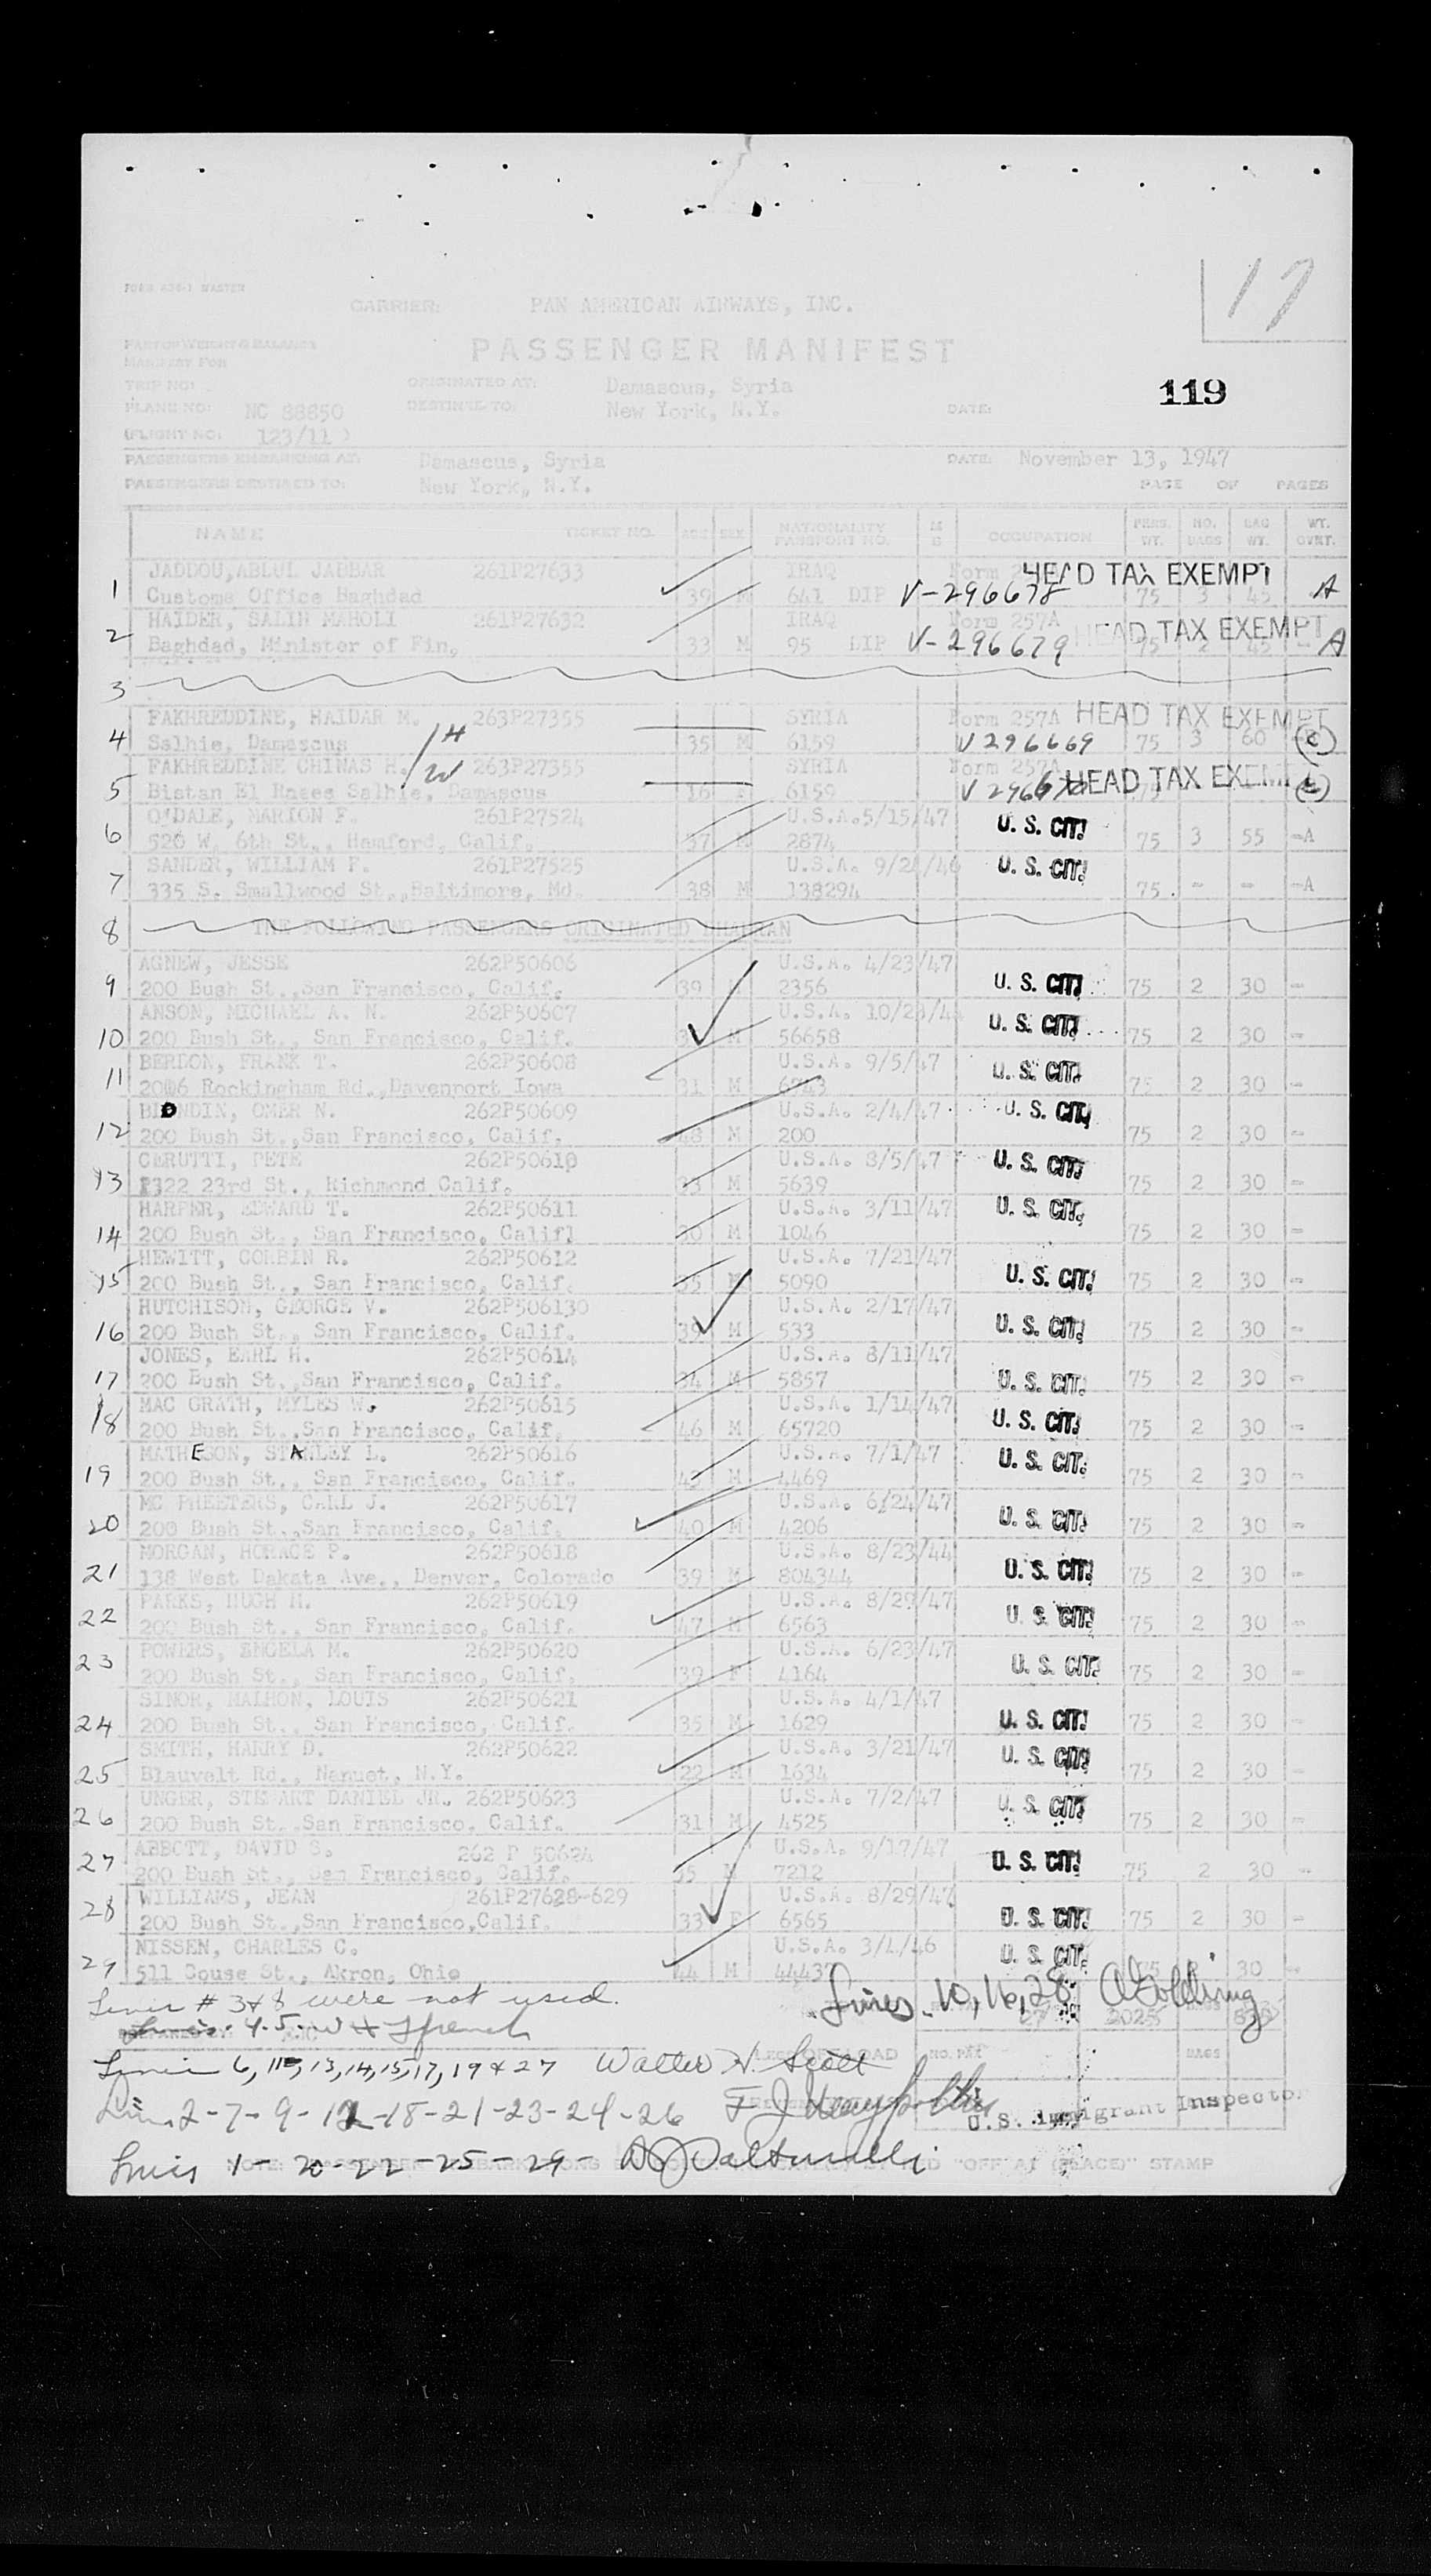 17
FORM 430-1 MASTER
CARRIER: PAN AMERICAN AIRWAYS, INC.
PASSENGER MANIFEST
MANIFEST FOR
TRIP NO:
ORIGINATED AT: Damascus, Syria
119
PLANE NO: NC 88850 DESTINED TO: New York, N.Y. DATE:
(FLIGHT NO: 123/11 )
PASSENGERS EMBARKING AT: Damascus, Syria DATE: November 13, 1947
PASSENGERS DESTINED TO: New York, N.Y. PAGE OF PAGES
NAME TICKET NO. AGE SEX NATIONALITY PASSPORT NO. OCCUPATION PERS. WT. NO. BAGS BAG WT. WT. OVRT.
JADDOU, ABLUL JABBAR 261P27633 IRAQ Form HEAD TAX EXEMPT
1 Customs Office Baghdad 39 M 641 DIP V-296678 75 3 45 A
HAIDER, SALIH MAHOLI 261P27632 IRAQ Form 257A HEAD TAX EXEMPT
2 Baghdad, Minister of Fin. 33 M 95 DIP V-296679 75 2 45 A
3
FAKHREDDINE, HAIDAR M. 263P27355 SYRIA Form 257A HEAD TAX EXEMPT
4 Salhie, Damascus H 35 M 6159 V 296669 75 3 60
FAKHREDDINE CHINAS H. W 263P27355 SYRIA Form 257A HEAD TAX EXEMPT
5 Bistan El Raees Salhie, Damascus 16 6159
O'DALE, MARION F. 261P27524 U.S.A. 5/15/47 U. S. CIT.
6 520 W. 6th St., Hanford, Calif. 37 M 2874 75 3 55 -A
SANDER, WILLIAM F. 261P27525 U.S.A. U. S. CIT.
7 335 S. Smallwood St., Baltimore, Md. 38 M 138294 75 - - -A
8 THE FOLLOWING PASSENGERS ORIGINATED DHAHRAN
AGNEW, JESSE 262P50606 U.S.A. 4/23/47
9 200 Bush St., San Francisco, Calif. 39 M 2356 U. S. CIT. 75 2 30 -
ANSON, MICHAEL A. N. 262P50607 U.S.A. U. S. CIT.
10 200 Bush St., San Francisco, Calif. M 56658 75 2 30
BERDON, FRANK T. 262P50608 U.S.A. 9/5/47 U. S. CIT.
11 2006 Rockingham Rd., Davenport Iowa 31 M 6743 75 2 30 -
BLONDIN, OMER N. 262P50609 U.S.A. 2/4/47 U. S. CIT.
12 200 Bush St., San Francisco, Calif. 48 M 200 75 2 30 -
CERUTTI, PETE 262P50610 U.S.A. 8/5/47 U. S. CIT.
13 1322 23rd St., Richmond Calif. M 5639 75 2 30 -
HARPER, EDWARD T. 262P50611 U.S.A. 3/11/47 U. S. CIT.
14 200 Bush St., San Francisco, Calif1 30 M 1046 75 2 30 -
HEWITT, CORBIN R. 262P50612 U.S.A. 7/21/47
15 200 Bush St., San Francisco, Calif. 35 M 5090 U. S. CIT. 75 2 30 -
HUTCHISON, GEORGE V. 262P506130 U.S.A. 2/17/47
16 200 Bush St., San Francisco, Calif. 39 M 533 U. S. CIT. 75 2 30 -
JONES, EARL H. 262P50614 U.S.A. 8/11/47
17 200 Bush St., San Francisco, Calif. 34 M 5857 U. S. CIT. 75 2 30 -
MAC GRATH, MYLES W. 262P50615 U.S.A. 1/14/47
18 200 Bush St., San Francisco, Calif. 46 M 65720 U. S. CIT. 75 2 30 -
MATHESON, STANLEY L. 262P50616 U.S.A. 7/1/47 U. S. CIT.
19 200 Bush St., San Francisco, Calif. M 4469 75 2 30 -
MC PHEETERS, CARL J. 262P50617 U.S.A. 6/24/47
20 200 Bush St., San Francisco, Calif. 40 M 4206 U. S. CIT. 75 2 30 -
MORGAN, HORACE P. 262P50618 U.S.A. 8/23/44
21 138 West Dakata Ave., Denver, Colorado 39 M 804344 U. S. CIT. 75 2 30 -
PARKS, HUGH H. 262P50619 U.S.A. 8/29/47
22 200 Bush St., San Francisco, Calif. 47 M 6563 U. S. CIT. 75 2 30 -
POWERS, ENGELA M. 262P50620 U.S.A. 6/23/47
23 200 Bush St., San Francisco, Calif. 39 F 4164 U. S. CIT. 75 2 30 -
SINOR, MALHON, LOUIS 262P50621 U.S.A. 4/1/47
24 200 Bush St., San Francisco, Calif. 35 M 1629 U. S. CIT. 75 2 30 -
SMITH, HARRY D. 262P50622 U.S.A. 3/21/47 U. S. CIT.
25 Blauvelt Rd., Nanuet, N.Y. 22 M 1634 75 2 30 -
UNGER, STEWART DANIEL JR. 262P50623 U.S.A. 7/2/47 U. S. CIT.
26 200 Bush St., San Francisco, Calif. 31 M 4525 75 2 30 -
ABBOTT, DAVID S. 262 P 50624 U.S.A. 9/17/47 U. S. CIT.
27 200 Bush St., San Francisco, Calif. 35 M 7212 75 2 30 -
WILLIAMS, JEAN 261P27628-629 U.S.A. 8/29/47
28 200 Bush St., San Francisco, Calif. 33 F 6565 U. S. CIT. 75 2 30 -
NISSEN, CHARLES C. U.S.A. 3/4/46 U. S. CIT.
29 511 Couse St., Akron, Ohio 44 M 44437 75 30 -
Lines # 3 & 8 were not used. Lines 10, 16, 28
4.5. 27 2025
Lines 6, 11, 13, 14, 15, 17, 19 & 27 Walter N. Scott
Lines 2-7-9-12-18-21-23-24-26
U.S. Immigrant Inspector
Lines 1-20-22-25-29-
"OFF AT (PLACE)" STAMP